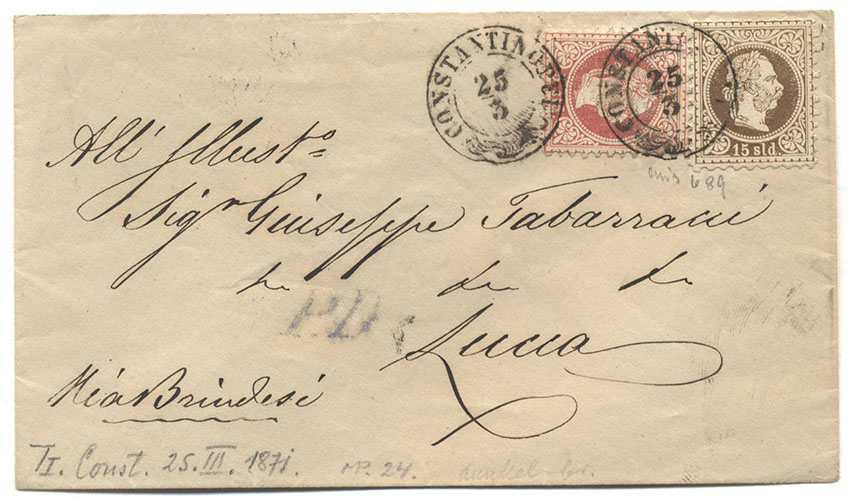 CONSTANTINOPEL
25
3
CONSTANTI
25
3
15 sld.
689
All' Illusto
Sigr Giuseppe Tabarracci
Lucca
P.D.
Via Brindesi
TI. Const. 25. III. 1871.
24.